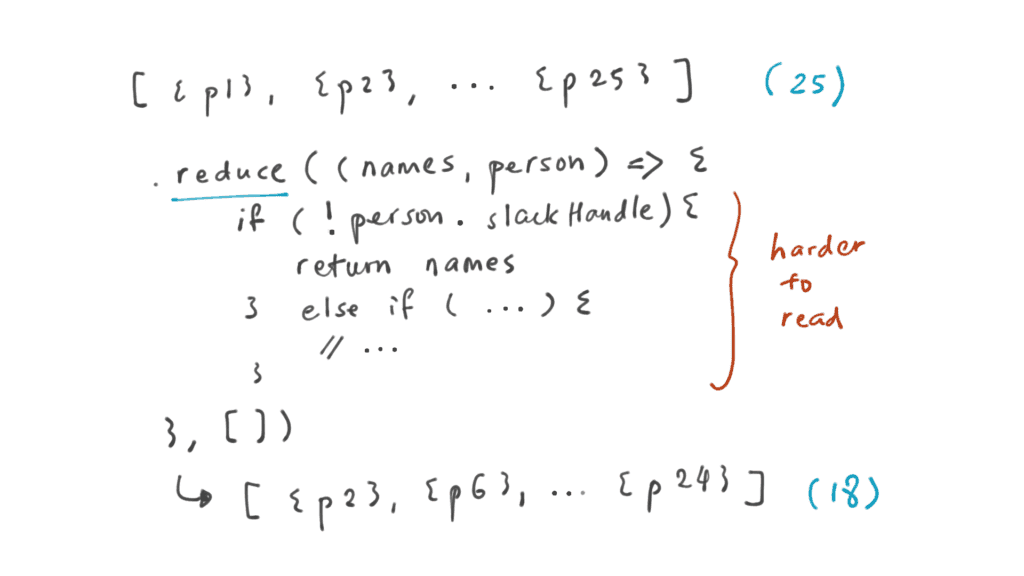 [ {p1}, {p2}, ... {p25} ] (25)
.reduce((names, person) => {
if (!person.slackHandle) {
return names
} else if (...) {
// ...
}
}, [])
harder
to
read
↳ [ {p2}, {p6}, ... {p24} ] (18)